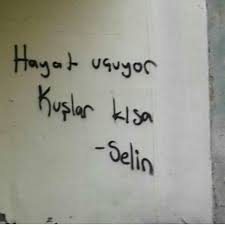 Hayat uçuyor
Kuşlar kısa
-Selin